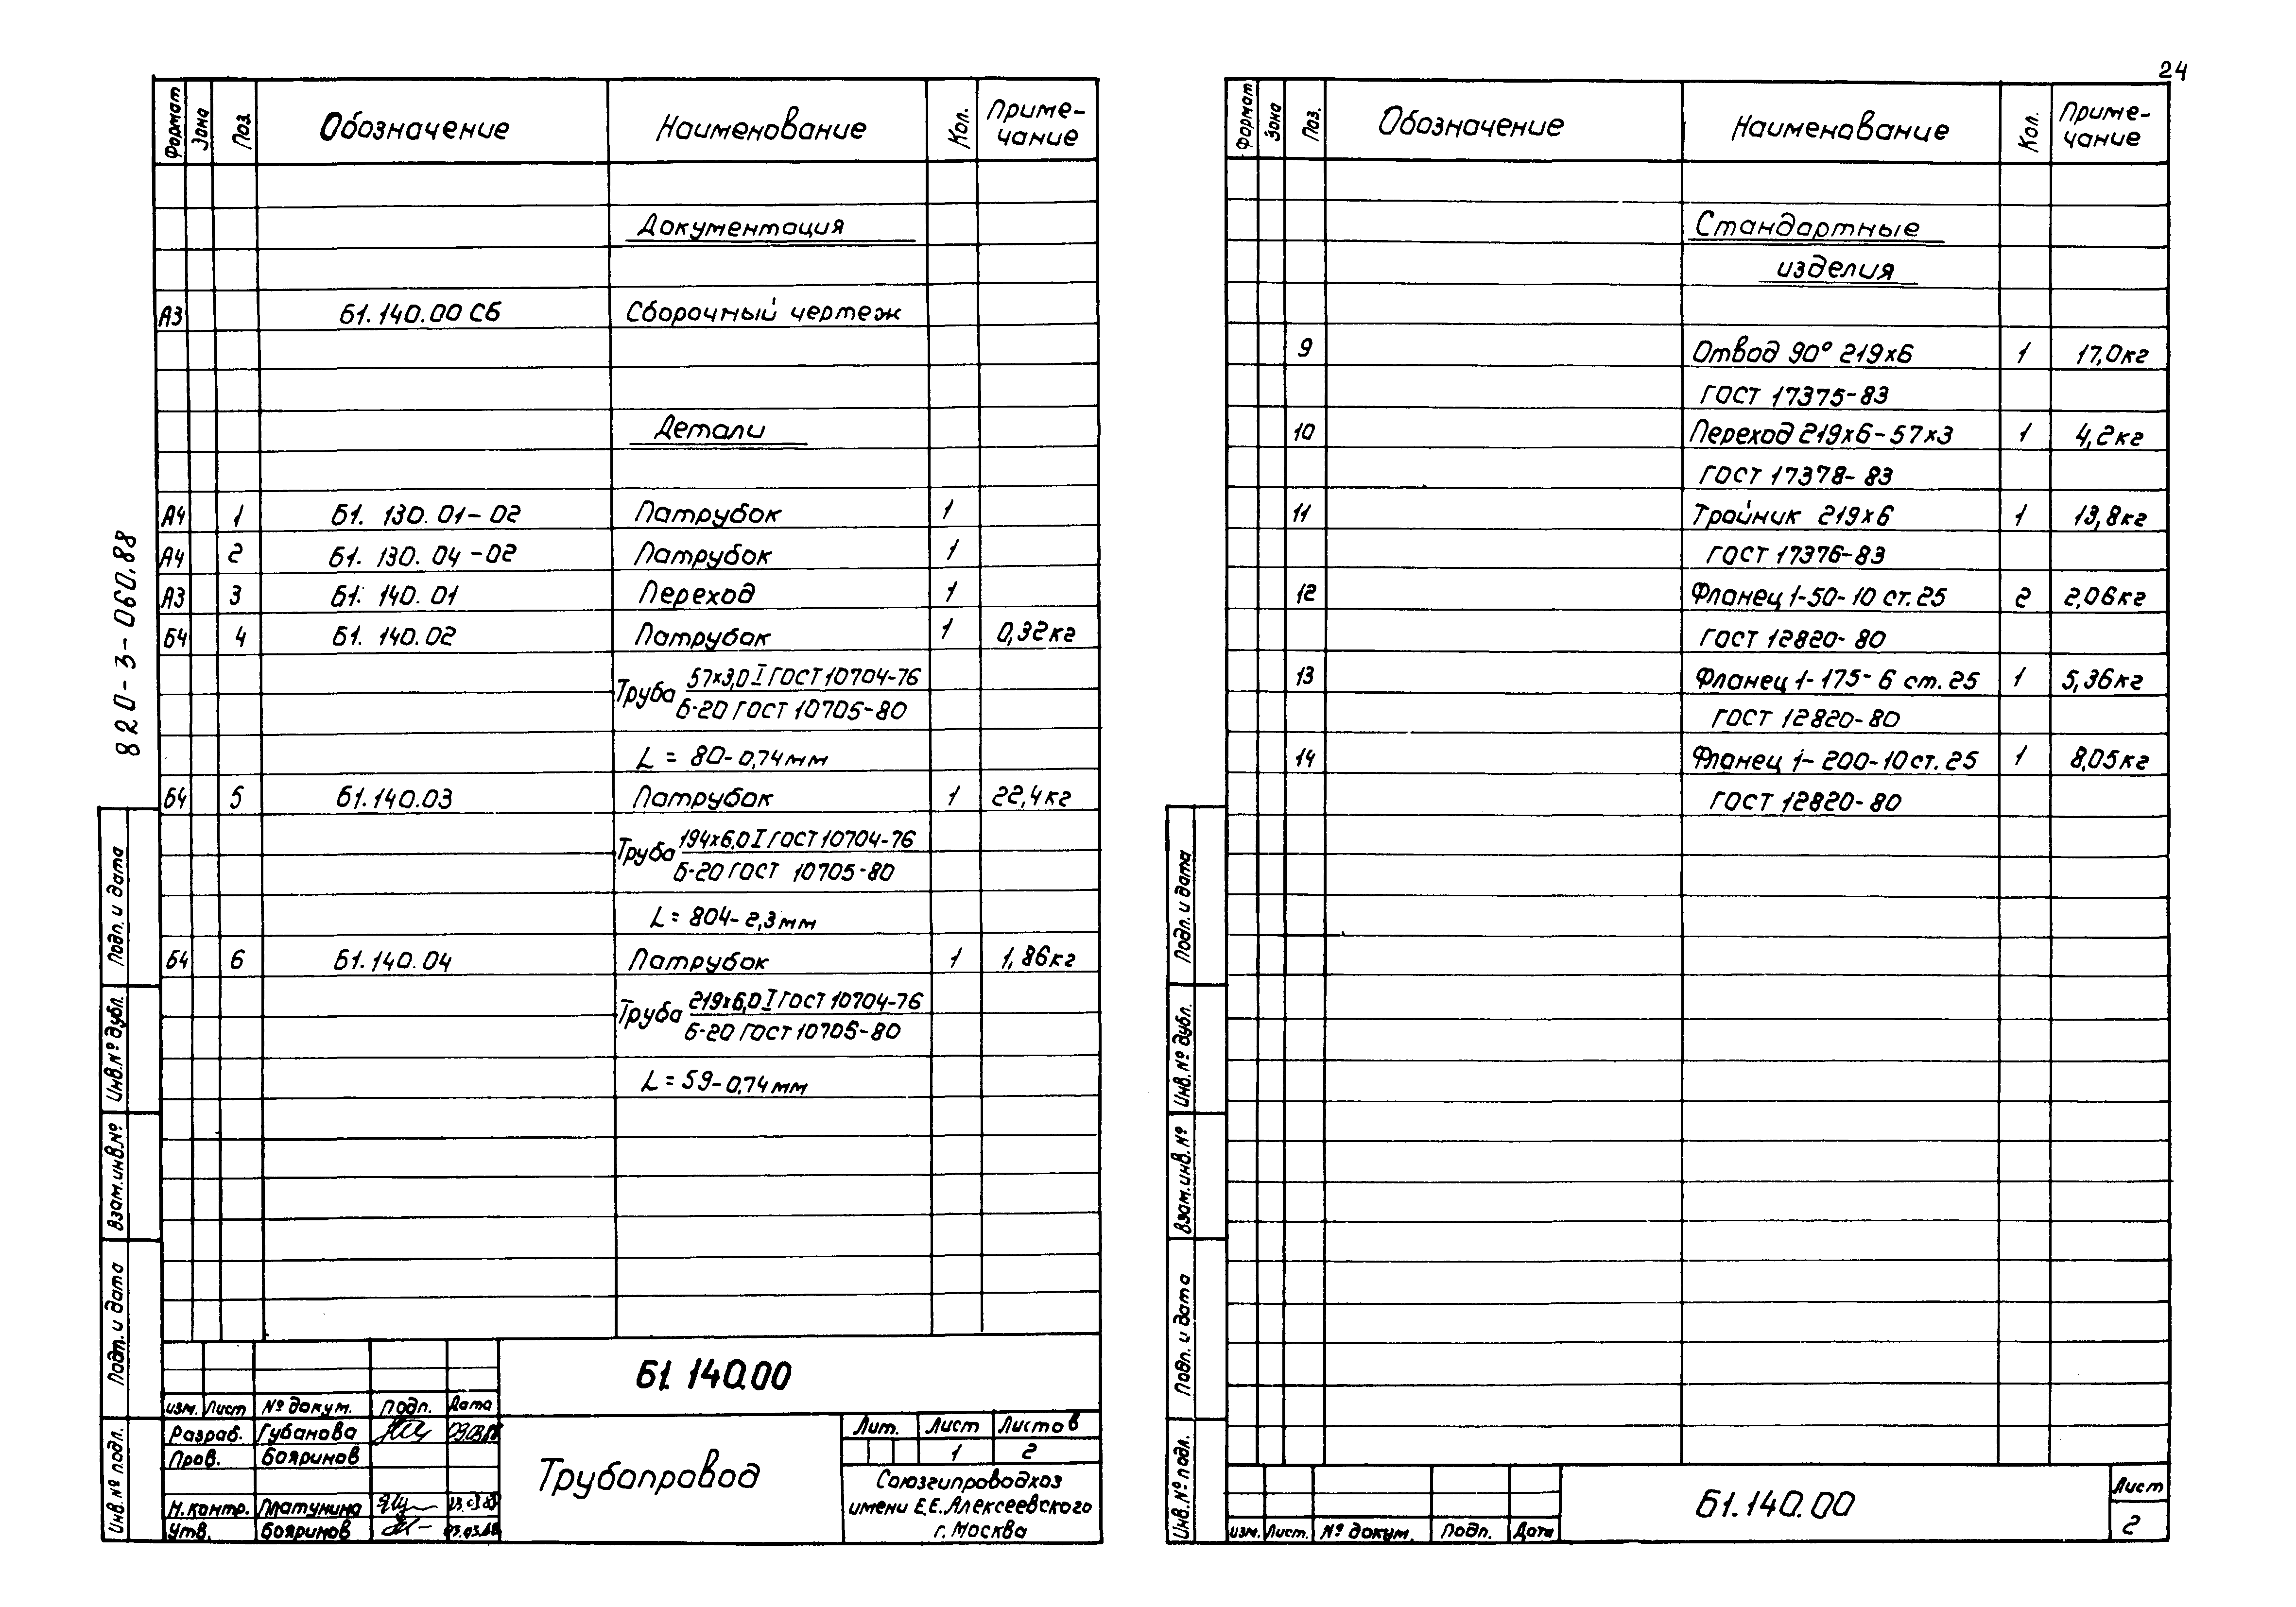 24
820-3-060.88
Формат Зона Поз. Обозначение Наименование Кол. Приме-
чание
Документация
А3 Б1.140.00 СБ Сборочный чертеж
Детали
А4 1 Б1.130.01-02 Патрубок 1
А4 2 Б1.130.04-02 Патрубок 1
А3 3 Б1.140.01 Переход 1
Б4 4 Б1.140.02 Патрубок 1 0,32кг
57х3,0 I ГОСТ 10704-76
Труба
Б-20 ГОСТ 10705-80
L = 80-0,74мм
Б4 5 Б1.140.03 Патрубок 1 22,4кг
194х6,0 I ГОСТ 10704-76
Труба
Б-20 ГОСТ 10705-80
L = 804-2,3мм
Б4 6 Б1.140.04 Патрубок 1 1,86кг
219х6,0 I ГОСТ 10704-76
Труба
Б-20 ГОСТ 10705-80
L = 59-0,74мм
Подп. и дата
Инв.№ дубл.
Взам.инв.№
Подп. и дата
Инв.№ подл.
Б1.140.00
изм. Лист № докум. Подп. Дата
Разраб. Губанова
Пров. Бояринов
Н.контр. Платунина
Утв. Бояринов
Трубопровод
Лит. Лист Листов
1 2
Союзгипроводхоз
имени Е.Е.Алексеевского
г. Москва
Формат Зона Поз. Обозначение Наименование Кол. Приме-
чание
Стандартные
изделия
9 Отвод 90° 219х6 1 17,0кг
ГОСТ 17375-83
10 Переход 219х6-57х3 1 4,2кг
ГОСТ 17378-83
11 Тройник 219х6 1 13,8кг
ГОСТ 17376-83
12 Фланец 1-50-10 ст.25 2 2,06кг
ГОСТ 12820-80
13 Фланец 1-175-6 ст.25 1 5,36кг
ГОСТ 12820-80
14 Фланец 1-200-10 ст.25 1 8,05кг
ГОСТ 12820-80
Подп. и дата
Инв.№ дубл.
Взам.инв.№
Подп. и дата
Инв.№ подл.
изм. Лист. № докум. Подп. Дата
Б1.140.00
Лист
2